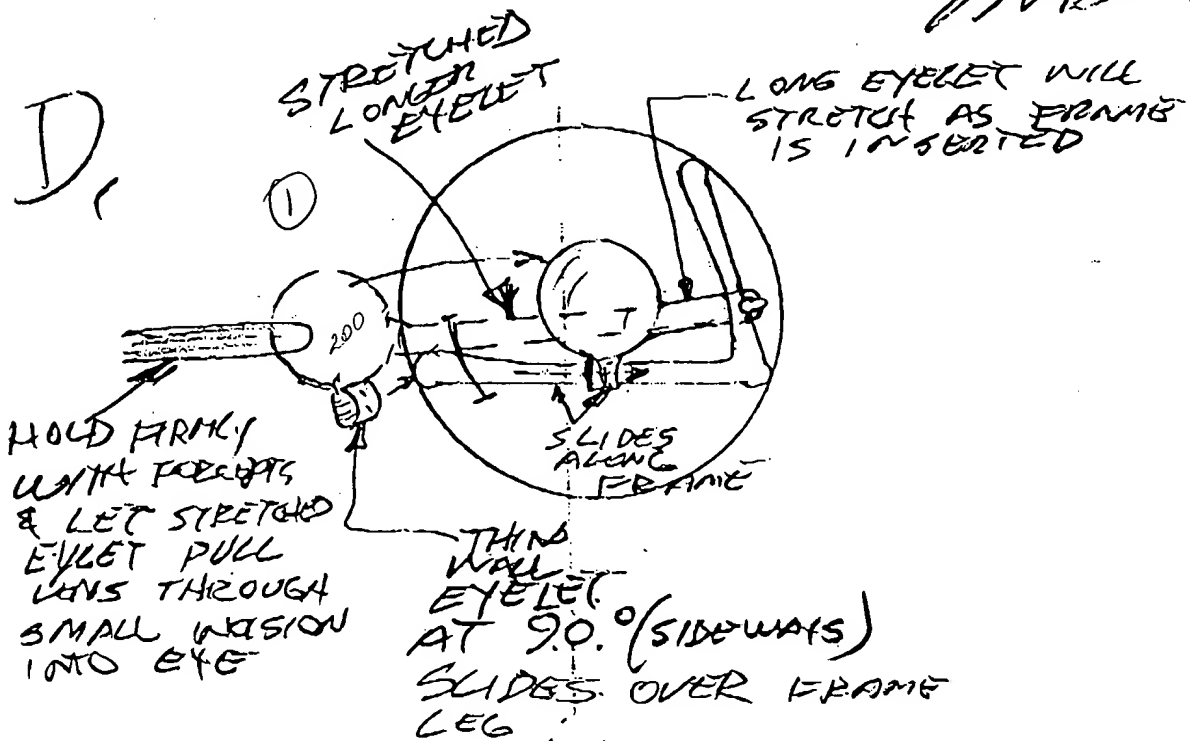 D,
①
STRETCHED
LONGER
EYELET
LONG EYELET WILL
STRETCH AS FRAME
IS INSERTED
200
HOLD FIRMLY
WITH FORCEPTS
& LET STRETCHED
EYLET PULL
LENS THROUGH
SMALL INCISION
INTO EYE
SLIDES
ALONG
FRAME
THIN
WALL
EYELET
AT 90.° (SIDEWAYS)
SLIDES OVER FRAME
LEG